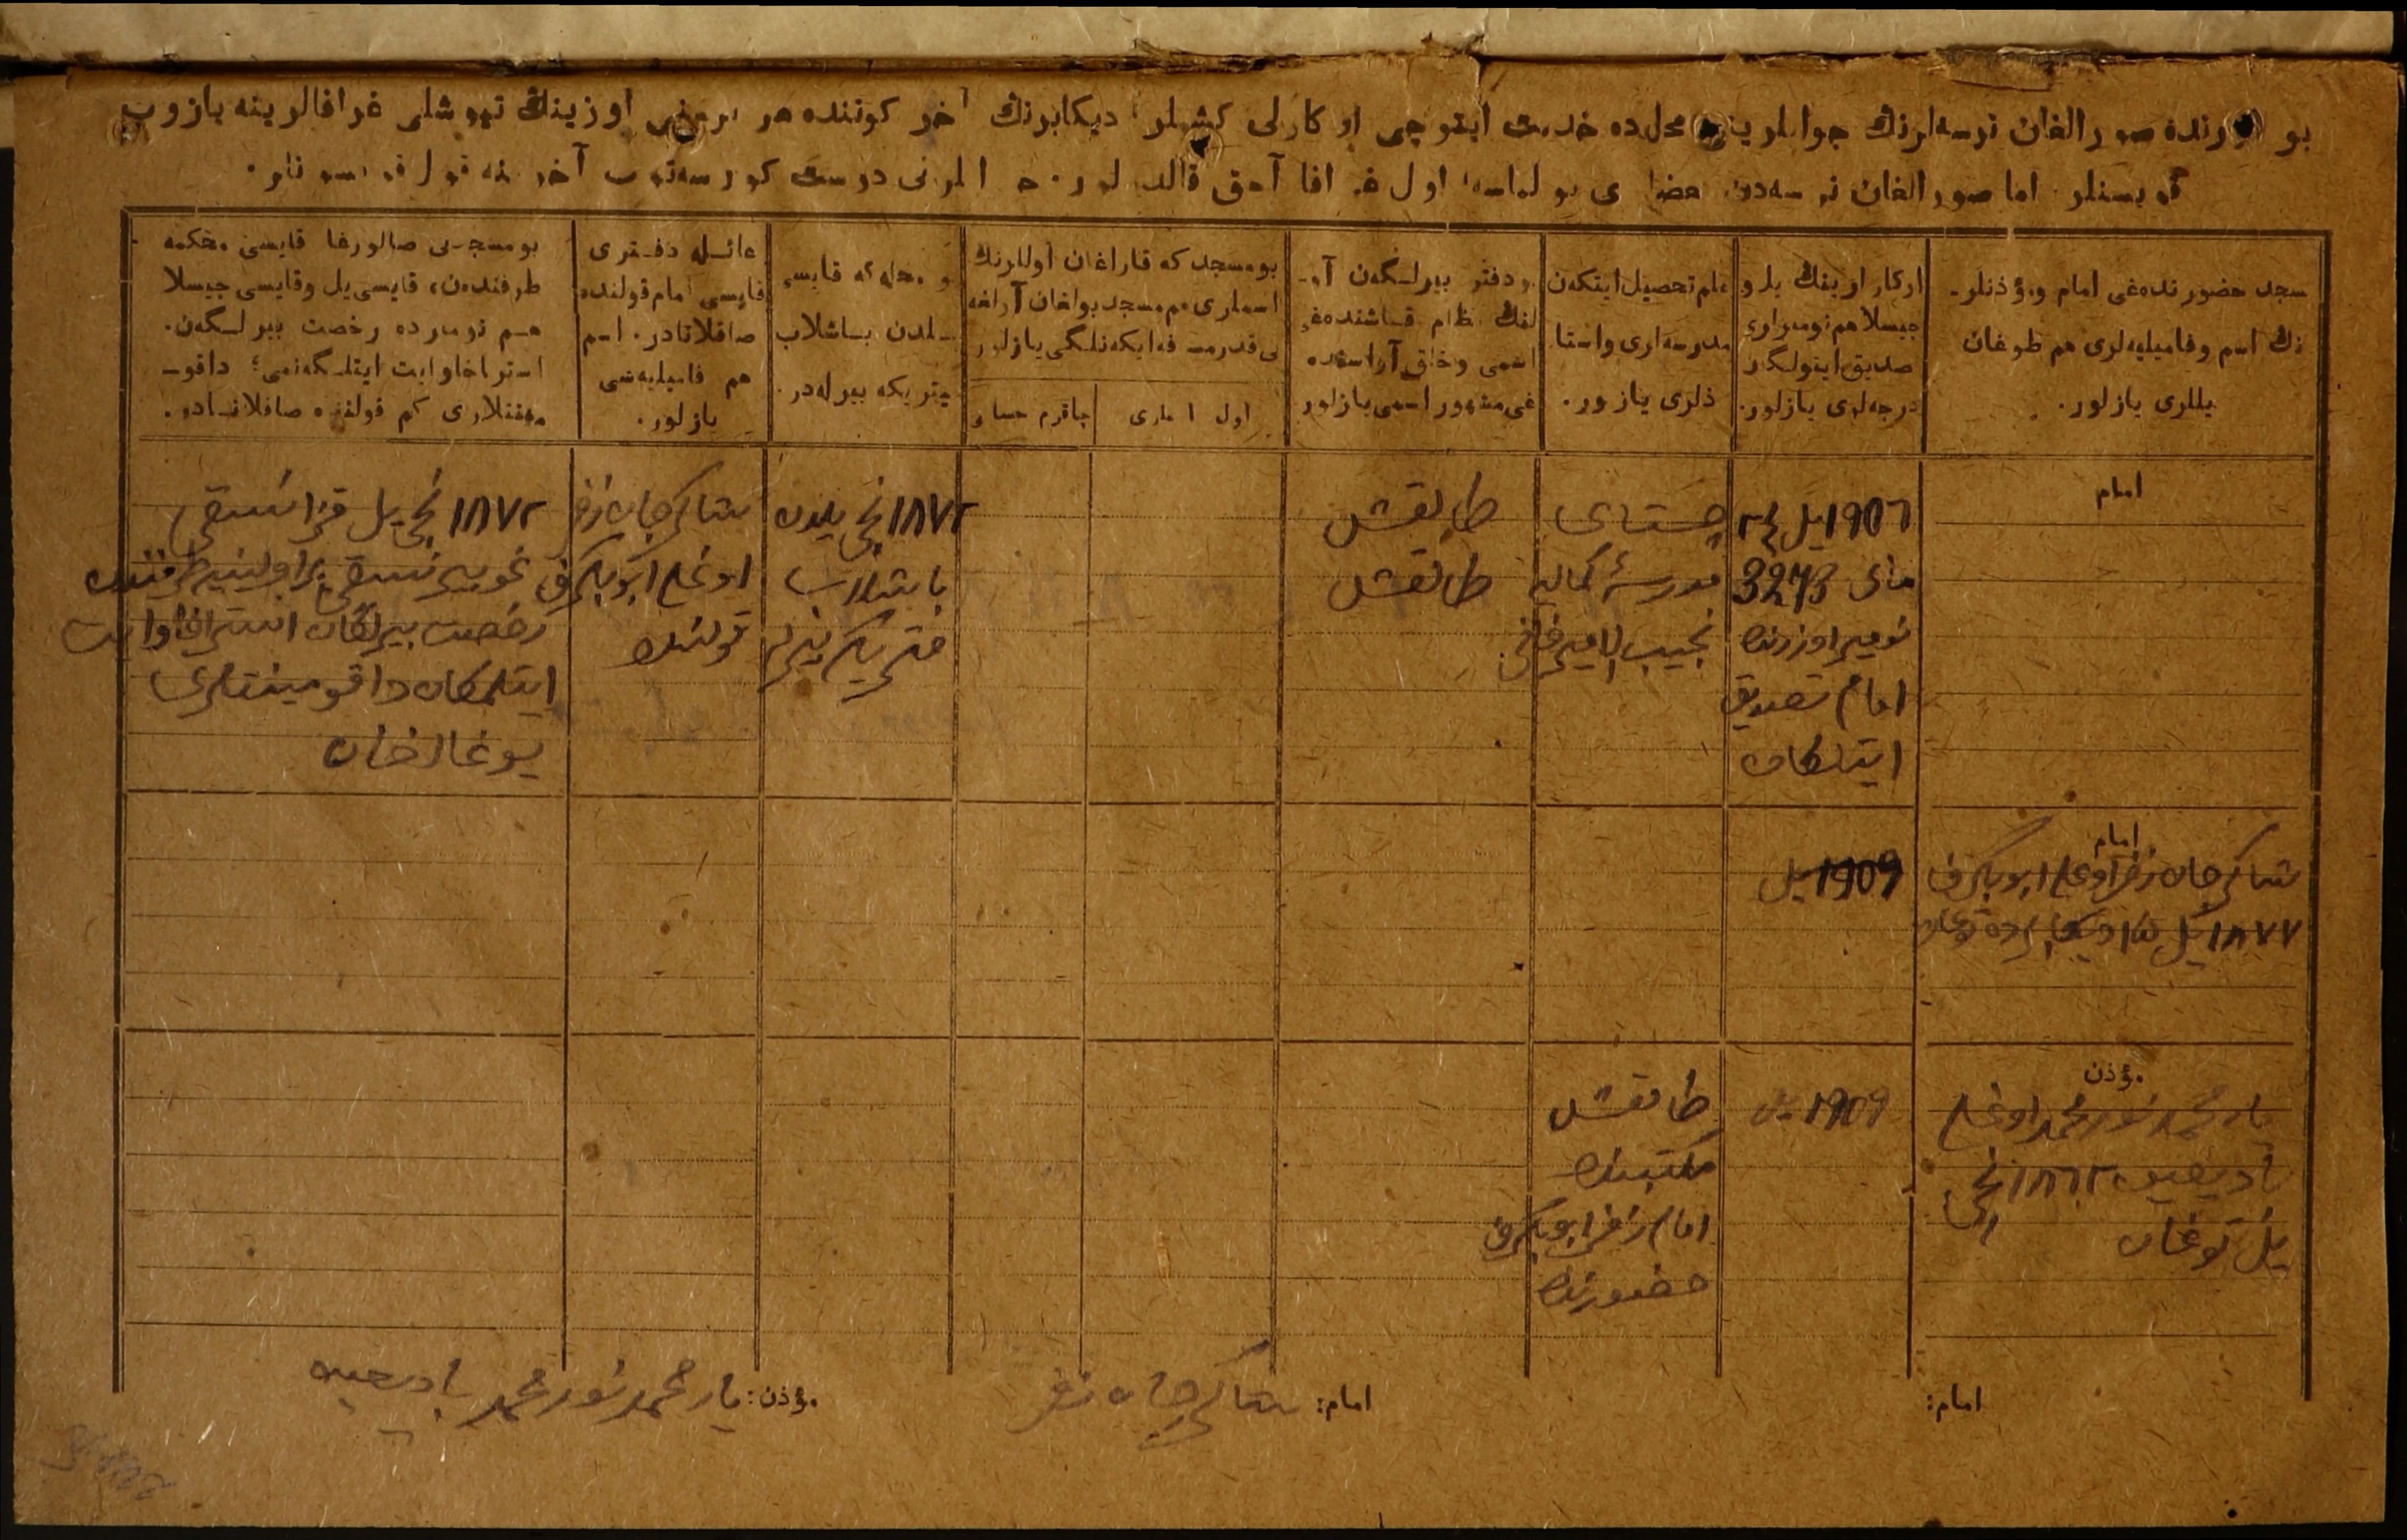 بو صورالغان نرسه‌لرنڭ جوابلرین محل‌ده خدمت ایتوچی اوکازلی کشیلر دیکابرنڭ آخر کوننده هر بریسی اوزینڭ تیوشلی غرافالرینه یازوب
قویسنلر. اما صورالغان نرسه‌دن اول غرافا آچق قالدرلور. درست کورسه‌توب آخرینه قول قویسونلر.
مسجد حضورنده‌غی امام ومؤذنلر-
نڭ اسم وفامیلیه‌لری هم طوغان
یللری یازلور.
اوکازلرینڭ یلی و
چیسلا هم نومیرلری
تصدیق ایتولگان
درجه‌لری یازلور.
علم تحصیل ایتکه‌ن
مدرسه‌لری واستا-
ذلری یازلور.
بو دفتر بیرلگه‌ن آو-
لنڭ نظام قاشنده‌غی
اسمی وخلق آراسنده
غی مشهور اسمی یازلور
بو مسجدکه قاراغان آوللرنڭ
اسملری هم مسجد بولغان آولغه
نی قدر مسافه‌ایکه‌نلگی یازلور
اول اسملری
چاقرم حسابی
بو محله‌گه قایسی
یلدن باشلاب
میتریکه بیرله‌در.
عائله دفتری
قایسی امام قولنده
صاقلانادر. اسم
هم فامیلیه‌سی
یازلور.
بو مسجدنی صالورغا قایسی محکمه
طرفندن، قایسی یل وقایسی چیسلا
هم نومرده رخصت بیرلگه‌ن.
استراخاوایت ایتلگه‌نمی؟ داقو-
مینتلاری کم قولنده صاقلانادر.
امام
1906 یل ٢٤
مای 3273
نومیر اوزرنده
امام تصدیق
ایتلکان
چستای
مدرسهٔ کمالیه
نجیب
طابقش
طابقش
١٨٧٢ نچی یلدن
باشلاب
متریکه بیرلر
شاکرجان ظفر
اوغلی ابوبکرف
قولنده
١٨٧٢ نچی یل قزانسقی
غوبیرنسقی پراولینیه طرفندن
رخصت بیرلکان استراخاوایت
ایتلمکان داقومینتلری
یوغالغان
امام
شاکرجان ظفر اوغلی ابوبکرف
١٨٧٧ یل ١٥ دیکابرده توغان
1909 یل
مؤذن
یارمحمد نورمحمد اوغلی
بادیعین ١٨٦٢ نچی
یل توغان
1909 یل
طابقش
مکتبنده
امام ظفر ابوبکرف
حضورنده
امام:
امام: شاکرجان ظفر
مؤذن: یارمحمد نورمحمد بادیعین